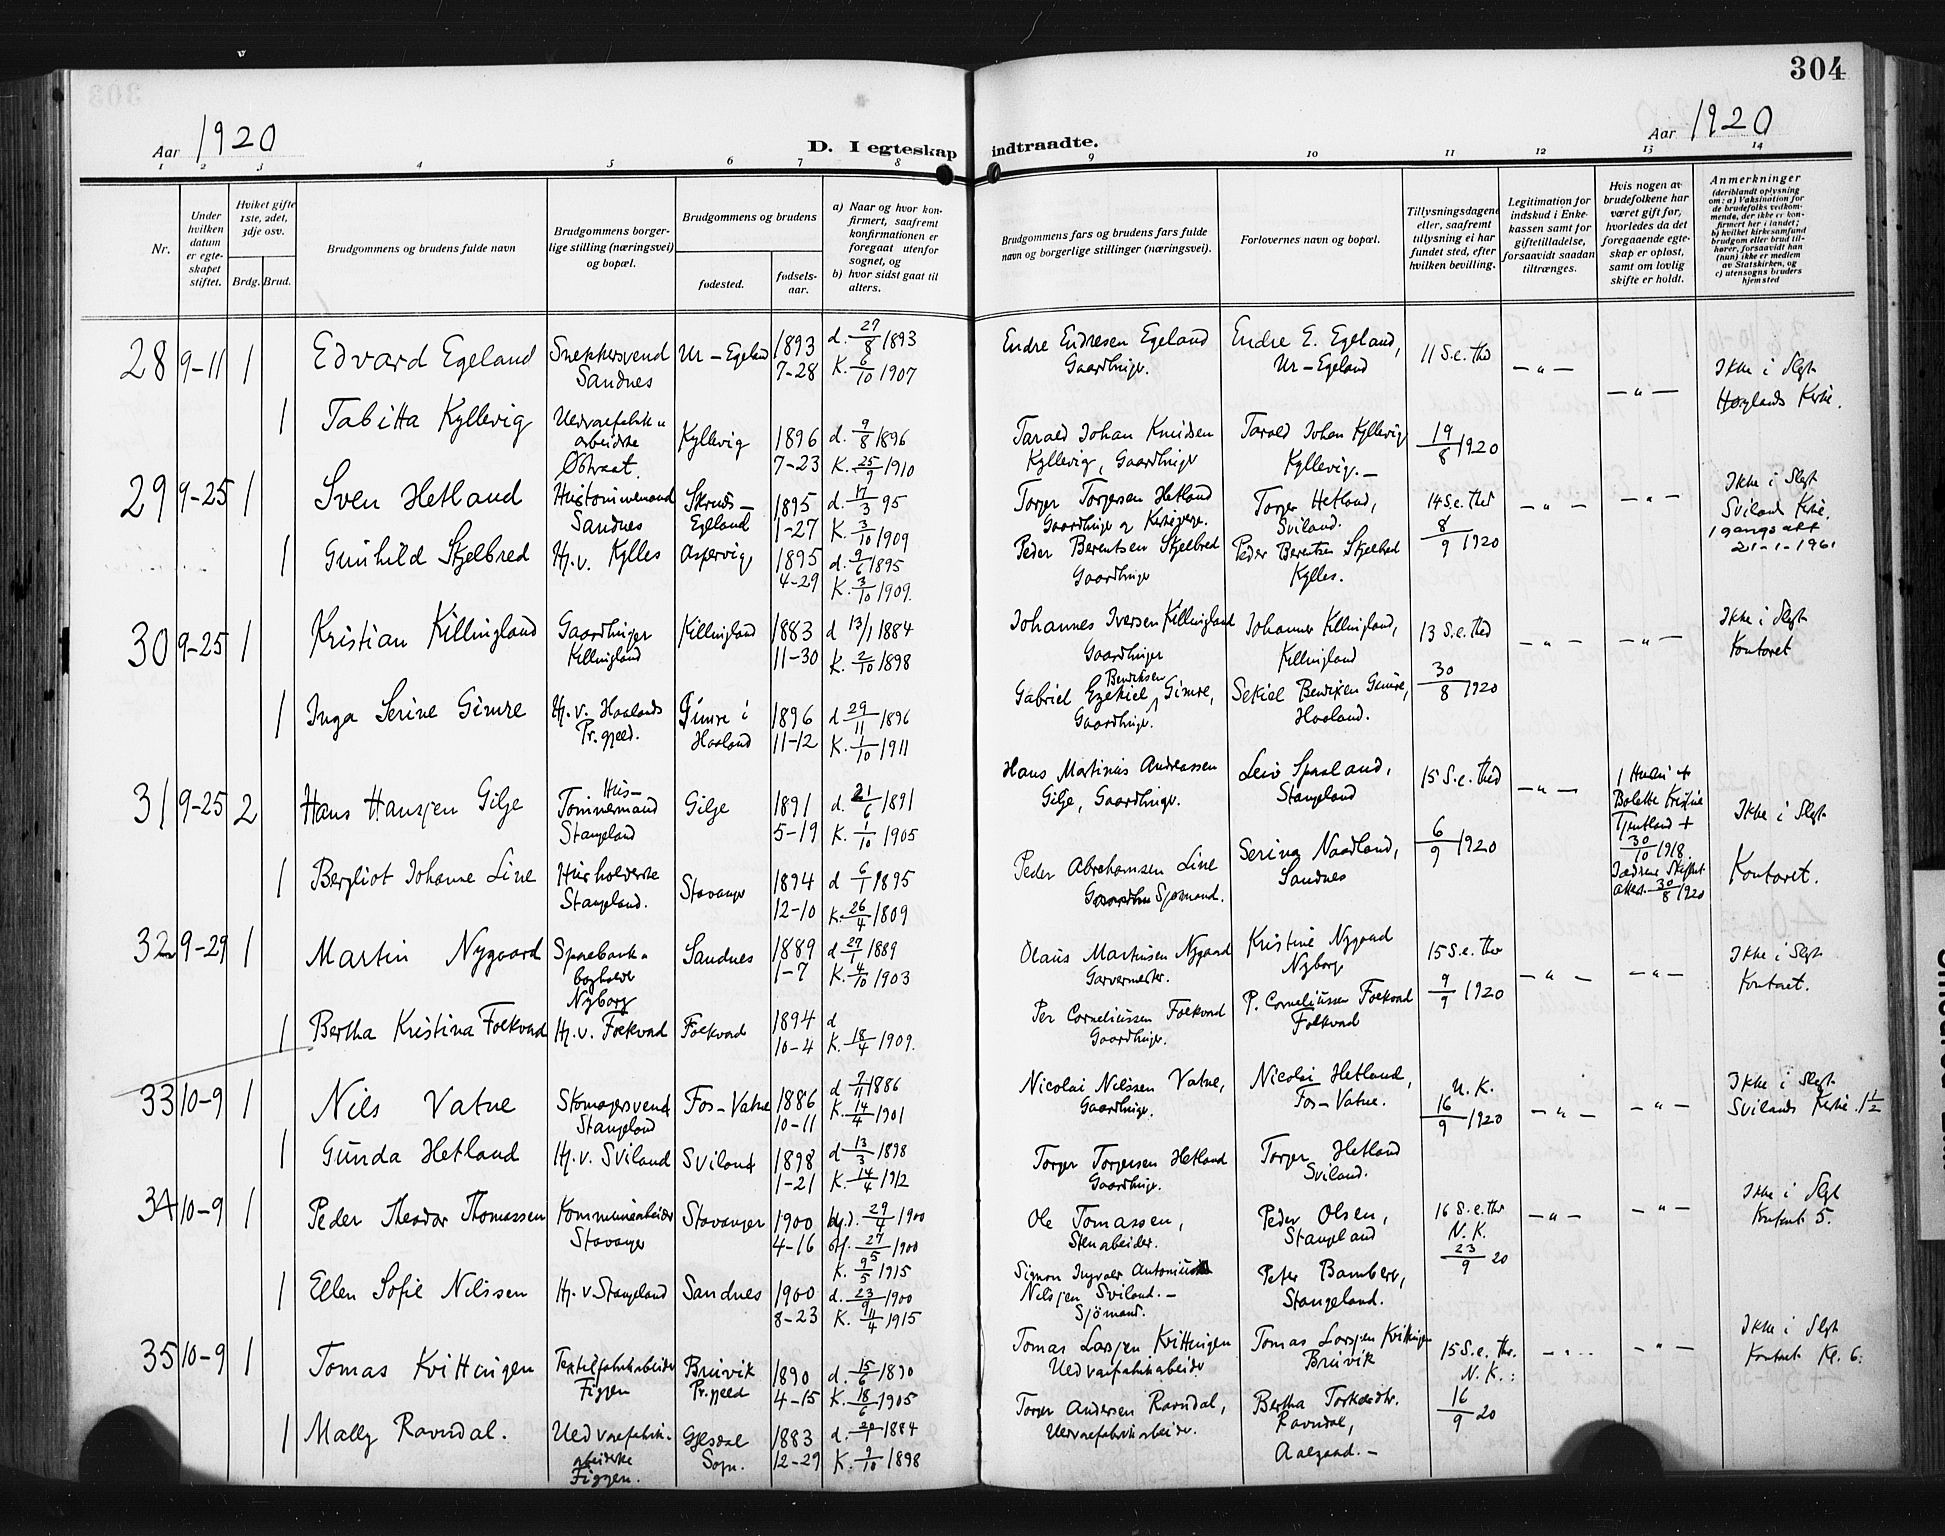 304
Aar 1920
D. I egteskap indtraadte.
Aar 1920
1 2 3 4 5 6 7 8 9 10 11 12 13 14
Nr.
Under hvilken datum er egteskapet stiftet.
Hviket gifte 1ste, 2det, 3dje osv.
Brdg. Brud.
Brudgommens og brudens fulde navn
Brudgommens borgerlige stilling (næringsvei) og bopæl.
Brudgommens og brudens
fødested.
fødselsaar.
a) Naar og hvor konfirmert, saafremt konfirmationen er foregaat utenfor sognet, og
b) hvor sidst gaat til alters.
Brudgommens fars og brudens fars fulde navn og borgerlige stillinger (næringsvei).
Forlovernes navn og bopæl.
Tillysningsdagene eller, saafremt tillysning ei har fundet sted, efter hvilken bevilling.
Legitimation for indskud i Enkekassen samt for giftetilladelse, forsaavidt saadan tiltrænges.
Hvis nogen av brudefolkene har været gift før, hvorledes da det foregaaende egteskap er opløst, samt om lovlig skifte er holdt.
Anmerkninger
(deriblandt oplysning om: a) Vaksination for de brudefolks vedkommende, der ikke er konfirmert her i landet; b) hvilket kirkesamfund brudgom eller brud tilhører, forsaavidt han (hun) ikke er medlem av Statskirken, og c) utensogns bruders hjemsted
28 9-11 1 Edvard Egeland Snekkersvend Sandnes Ur-Egeland 1893 7-28 d. 27/8 1893 K. 6/10 1907 Endre Endresen Egeland Gaardbruger. Endre E. Egeland, Ur-Egeland 11 S.e. thd -"- -"- Ikke i Slgt. Høylands Kirke.
1 Tabitta Kyllevig Uldvarefabrikarbeidske Kyllevig 1896 7-23 d. 9/8 1896 K. 25/9 1910 Tarald Johan Knudsen Kyllevig, Gaardbruger Tarald Johan Kyllevig Kyllevig.- 19/8 1920
29 9-25 1 Sven Hetland Hustømmermand Sandnes Egeland 1895 1-27 d. 17/3 95 K. 3/10 1909 Torger Torgersen Hetland Gaardbruger og Kirkeverge. Torger Hetland, Sviland. 14 S.e. thd 8/9 1920 -"- -"- Ikke i Slgt Svilands Kirke. 1 gangs akt 21-1-1961
1 Gunhild Skjelbred Hj.v. Kylles Aspervig 1895 4-29 d. 9/6 1895 K. 3/10 1909. Peder Berentsen Skjelbred Gaardbruger Peder Berentsen Skjelbred Kylles.
30 9-25 1 Kristian Killingland Gaardbruger Killingland Killingland 1883 11-30 d 13/1 1884 K. 2/10 1898 Johannes Iversen Killingland Gaardbruger Johannes Killingland, Killingland 13 S.e. thd 30/8 1920 -"- -"- Ikke i Slgt Kontoret
1 Inga Serine Gimre Hj.v. Haalands Pr.gjeld. Gimre i Haaland 1896 11-12 d 29/11 1896 K. 1/10 1911 Gabriel Ezekiel Bendiksen Gimre, Gaardbruger. Sekiel Bendixen Gimre, Haaland.
31 9-25 2 Hans Hansen Gilje Hus-Tømmermand Stangeland Gilje 1891 5-19 d. 21/6 1891 K. 1/10 1905 Hans Martinus Andreassen Gilje, Gaardbruger. Leiv Spaaland, Stangeland 15 S.e. thd 6/9 1920 -"- Bolette Kristine + 30/10 1918. Jædrens Skifte attest 30/8 1920 Ikke i Slgt Kontoret.
1 Bergliot Johanne Line Husholderske Stangeland. Stavanger 1894 12-10 d 6/1 1895 K. 26/4 1809 Peder Abrahamsen Line Sjømand. Serina Naadland, Sandnes
32 9-29 1 Martin Nygaard Sparebankbogholder Nyborg Sandnes 1889 1-7 d 27/1 1889 K. 4/10 1903 Olaus Martinsen Nygaard Garvermester. Kristine Nygaard Nyborg 15 S.e. thr 9/9 1920 -"- -"- Ikke i Slgt Kontoret.
1 Bertha Kristina Folkvord Hj.v. Folkvord Folkvord 1894 10-4 d K. 18/4 1909. Per Corneliussen Folkvord Gaardbruger. P. Corneliussen Folkvord Folkvord
33 10-9 1 Nils Vatne Skomagersvend Stangeland Fos-Vatne 1886 10-11 d 7/11 1886 K. 14/4 1901 Nicolai Nilssen Vatne, Gaardbruger. Nicolai Hetland, Fos-Vatne. U.K. 16/9 1920 -"- -"- Ikke i Slgt Svilands Kirke. 1½
1 Gunda Hetland Hj.v. Sviland Sviland 1898 1-21 d 13/3 1898 K. 14/4 1912 Torger Torgersen Hetland Gaardbruger. Torger Hetland Sviland.
34 10-9 1 Peder Theodor Thomassen Kommunearbeider Stavanger Stavanger 1900 4-16 hjd. 29/4 1900 off. 27/5 1900 K. 9/5 1915 Ole Tomassen, Stenarbeider. Peder Olsen, Stangeland 16 S.e. thr N.K. 23/9 20 -"- -"- Ikke i Slgt Kontoret 5.
1 Ellen Sofie Nilssen Hj.v. Stangeland Sandnes 1900 8-23 d. 23/9 1900 K. 11/4 1915 Simon Ingvald Antonius Nilssen Sviland.- Sjömand. Peter Bamberg, Stangeland.
35 10-9 1 Tomas Kvittingen Textilfabrikarbeider Figgen Bruvik Pr.gjeld 1890 4-15 d. 15/6 1890 K. 18/6 1905 Tomas Larsen Kvittingen Uldvarefabrikarbeider Tomas Larsen Kvittingen Bruvik 15 S.e. thr. N.K.: 16/9 20 -"- -"- Ikke i Slgt Kontoret Kl. 6.
1 Mally Ravndal. Uldvarefabrikarbeiderske Figgen. Gjesdal Sogn. 1883 12-29 d. 1884 K. 9/10 1898 Torger Andersen Ravndal, Uldvarefabrikarbeider. Bertha Torkeldtr. Ravndal, Aalgaard.-